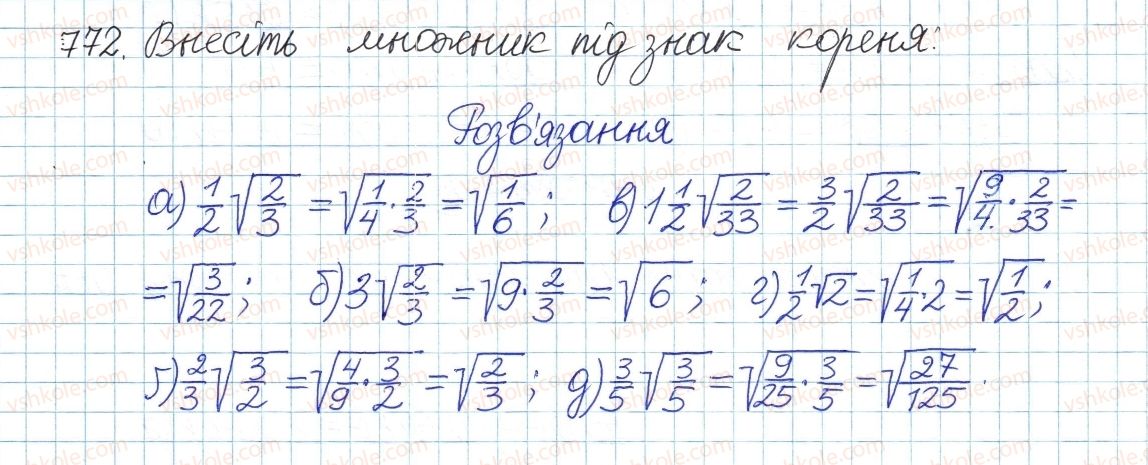 772. Внесіть множник під знак кореня:
Розв'язання
а) 1/2 √(2/3) = √(1/4 · 2/3) = √(1/6); в) 1 1/2 √(2/33) = 3/2 √(2/33) = √(9/4 · 2/33) =
= √(3/22); б) 3 √(2/3) = √(9 · 2/3) = √6; г) 1/2 √2 = √(1/4 · 2) = √(1/2);
ґ) 2/3 √(3/2) = √(4/9 · 3/2) = √(2/3); д) 3/5 √(3/5) = √(9/25 · 3/5) = √(27/125).